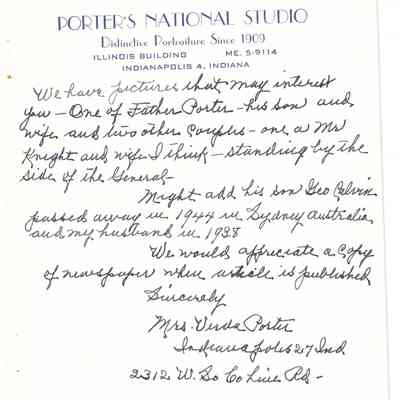 PORTER'S NATIONAL STUDIO
Distinctive Portraiture Since 1909
ILLINOIS BUILDING ME. 5-9114
INDIANAPOLIS 4, INDIANA
We have pictures that may interest
you - One of Father Porter - his son and
wife and two other Couples - one a Mr
Knight and wife I think - standing by the
side of the General -
Might add his son Geo Calvin
passed away in 1944 in Sydney Australia
and my husband in 1938
We would appreciate a Copy
of newspaper when article is published
Sincerely
Mrs. Verda Porter
Indianapolis 27 Ind
2312 W. So Co Line Rd -